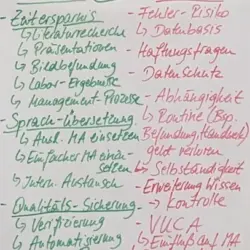 Zeitersparnis
↳ Literaturrecherche
↳ Präsentationen
↳ Bildbefundung
↳ Labor-Ergebnisse
↳ Management-Prozesse
Sprach-Übersetzung
↳ Ausl. MA einsetzen
↳ Einfacher MA einsetzen
↳ Intern. Austausch
- Qualitäts-Sicherung
↳ Verifizierung
↳ Automatisierung
- Fehler-Risiko
↳ Datenbasis
- Haftungsfragen
- Datenschutz
- Abhängigkeit
↳ Routine (Bsp.
Befundung, Handwerk)
geht verloren
↳ Selbständigkeit
- Erweiterung Wissen
→ Kontrolle
- VUCA
↳ Einfluß auf MA